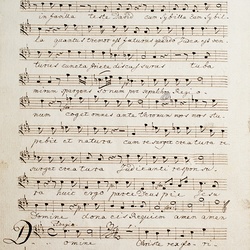 in favilla teste David cum Sybilla cum Sybil-
la quantus tremor est futurus quando Judex est ven
turus cuncta stricte discussurus tuba
mirum spargens sonum per sepulchra Regio-
num coget omnes ante thronum mors stu-
pebit et natura cum resurget creatura cum re-
surget creatura judicanti respon-
sura huic ergo parce Deus pie
Domine dona eis Requiem amen amen
Domine Christe rex glo-